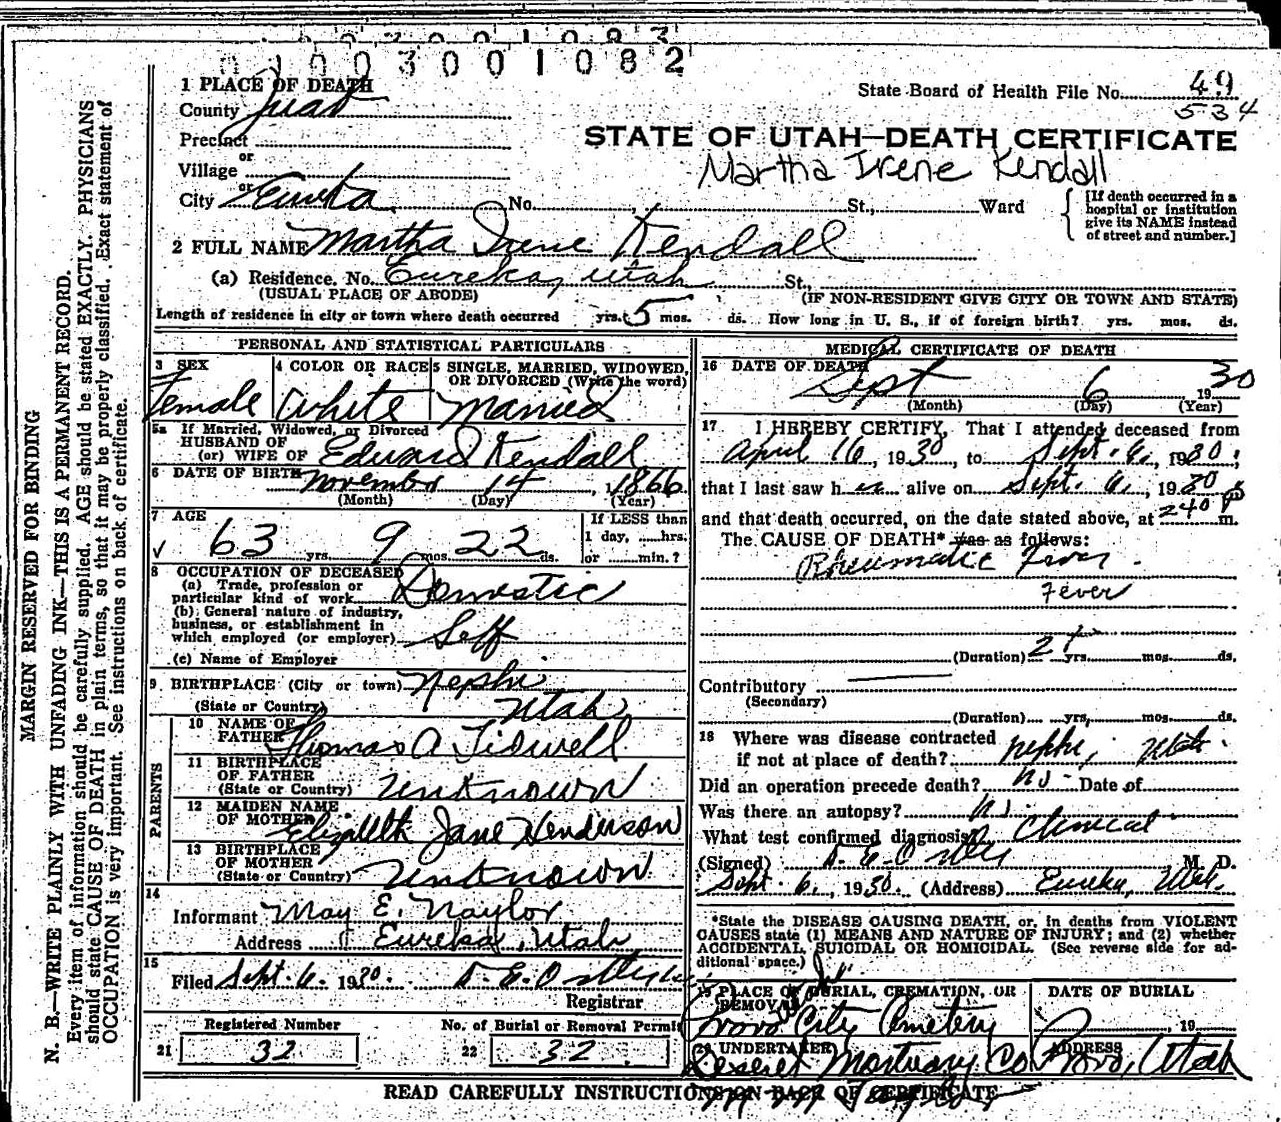 01003001082
1 PLACE OF DEATH
County Juab
State Board of Health File No. 49
534
Precinct
or
STATE OF UTAH—DEATH CERTIFICATE
Village
Martha Irene Kendall
or
City Eureka No. St., Ward
[If death occurred in a hospital or institution give its NAME instead of street and number.]
2 FULL NAME Martha Irene Kendall
(a) Residence. No. Eureka, Utah St.,
(USUAL PLACE OF ABODE) (IF NON-RESIDENT GIVE CITY OR TOWN AND STATE)
Length of residence in city or town where death occurred yrs. 5 mos. ds. How long in U. S., if of foreign birth? yrs. mos. ds.
PERSONAL AND STATISTICAL PARTICULARS
3 SEX 4 COLOR OR RACE 5 SINGLE, MARRIED, WIDOWED,
OR DIVORCED (Write the word)
Female White Married
5a If Married, Widowed, or Divorced
HUSBAND OF
(or) WIFE OF Edward Kendall
6 DATE OF BIRTH November 14, 1866
(Month) (Day) (Year)
7 AGE If LESS than
1 day, ......hrs.
63 yrs. 9 mos. 22 ds. or ........min.?
8 OCCUPATION OF DECEASED
(a) Trade, profession or
particular kind of work Domestic
(b) General nature of industry,
business, or establishment in
which employed (or employer) Self
(c) Name of Employer
9 BIRTHPLACE (City or town) Nephi
(State or Country) Utah
PARENTS
10 NAME OF
FATHER Thomas A Tidwell
11 BIRTHPLACE
OF FATHER
(State or Country) Unknown
12 MAIDEN NAME
OF MOTHER Elizabeth Jane Henderson
13 BIRTHPLACE
OF MOTHER
(State or Country) Unknown
14
Informant May E. Naylor
Address Eureka, Utah
15
Filed Sept. 6, 1930. D. E. Ostler
Registrar
Registered Number No. of Burial or Removal Permit
21 32 22 32
MEDICAL CERTIFICATE OF DEATH
16 DATE OF DEATH Sept 6 1930
(Month) (Day) (Year)
17 I HEREBY CERTIFY, That I attended deceased from
April 16, 1930, to Sept. 6, 1930;
that I last saw her alive on Sept. 6, 1930
and that death occurred, on the date stated above, at 240 P m.
The CAUSE OF DEATH* was as follows:
Rheumatic Fever.
Fever
(Duration) 2+ yrs. mos. ds.
Contributory
(Secondary)
(Duration) yrs. mos. ds.
18 Where was disease contracted
if not at place of death? Nephi, Utah.
Did an operation precede death? No - Date of
Was there an autopsy? No.
What test confirmed diagnosis? Clinical
(Signed) D. E. Ostler M. D.
Sept. 6, 1930. (Address) Eureka, Utah.
*State the DISEASE CAUSING DEATH, or, in deaths from VIOLENT
CAUSES state (1) MEANS AND NATURE OF INJURY; and (2) whether
ACCIDENTAL SUICIDAL OR HOMICIDAL. (See reverse side for ad-
ditional space.)
19 PLACE OF BURIAL, CREMATION, OR REMOVAL DATE OF BURIAL
Provo City Cemetery , 19
20 UNDERTAKER ADDRESS
Deseret Mortuary Co Provo, Utah
READ CAREFULLY INSTRUCTIONS ON BACK OF CERTIFICATE
MARGIN RESERVED FOR BINDING
N. B.—WRITE PLAINLY WITH UNFADING INK—THIS IS A PERMANENT RECORD.
Every item of information should be carefully supplied. AGE should be stated EXACTLY. PHYSICIANS
should state CAUSE OF DEATH in plain terms, so that it may be properly classified. Exact statement of
OCCUPATION is very important. See instructions on back of certificate.